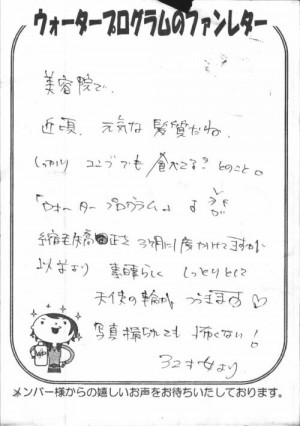 ウォータープログラムのファンレター
美容院で、
近頃、元気な髪質だね、
しっかり コンブでも 食べてる？とのこと。
「ウォータープログラム」よ
縮毛矯正を 3ヶ月に1度かけてますが
以前より 素晴らしく しっとりとして
天使の輪が つきます♡
写真撮られても 怖くない！
32才女より
メンバー様からの嬉しいお声をお待ちいたしております。